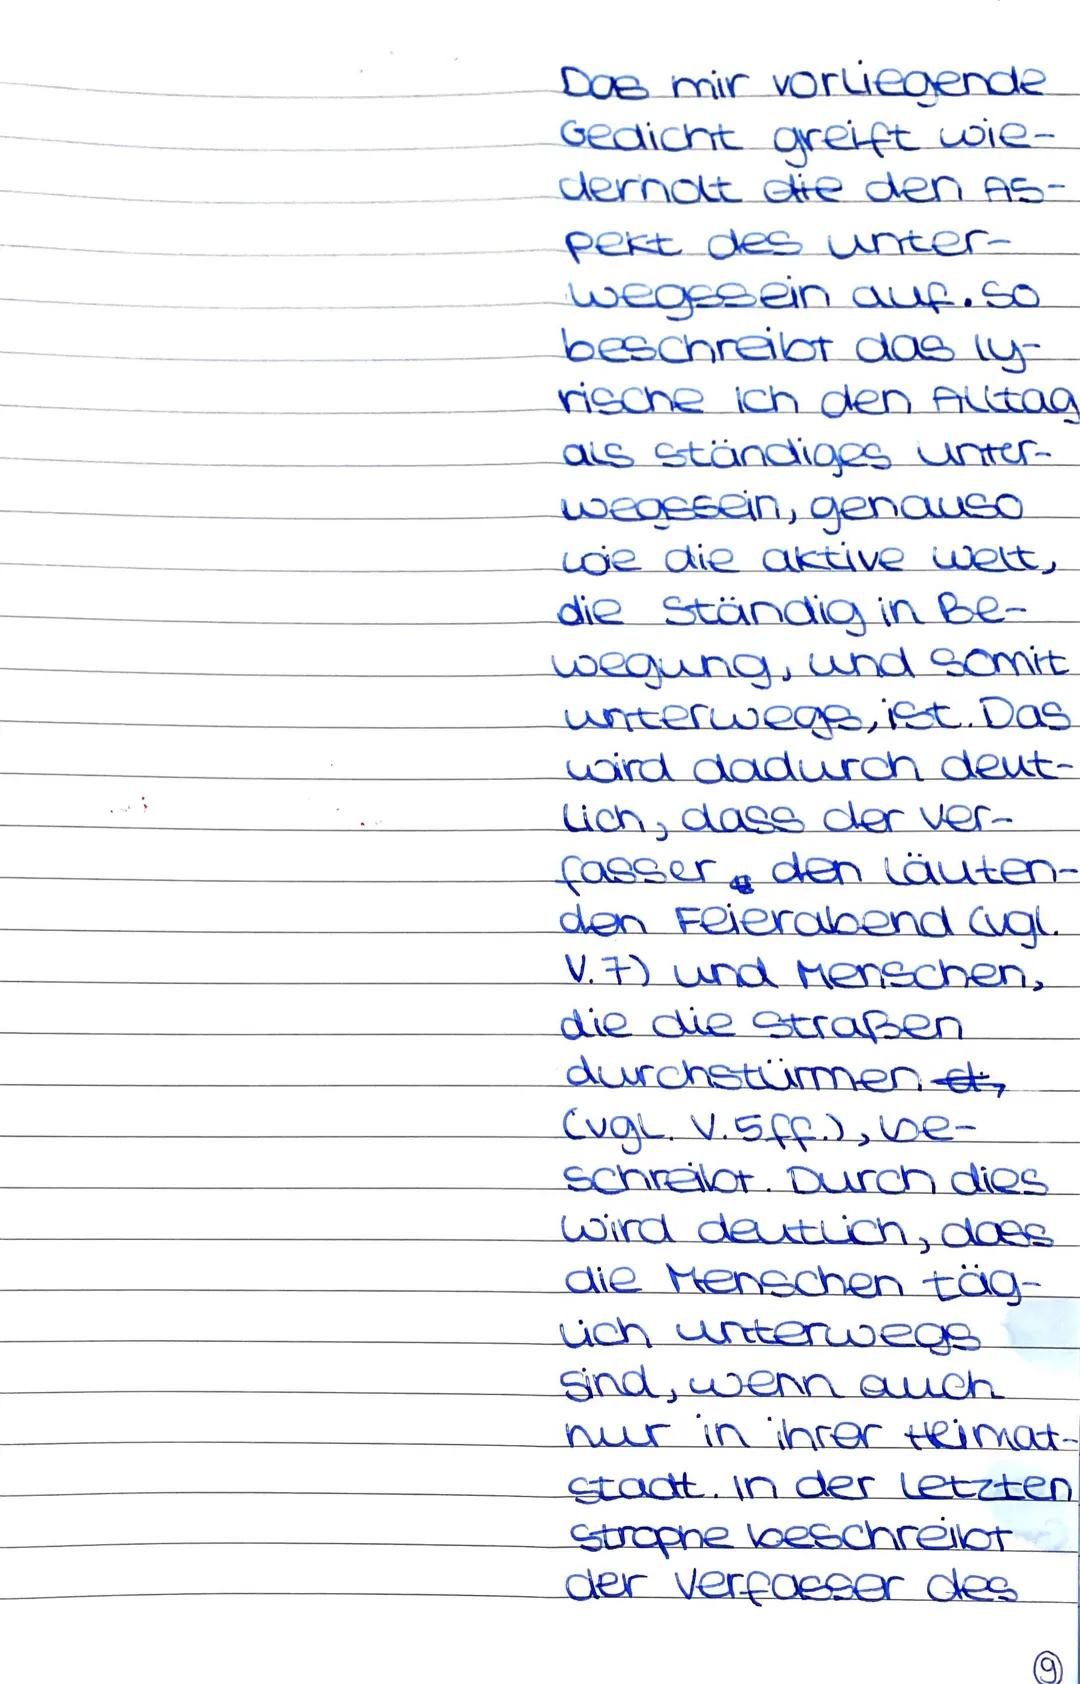 Das mir vorliegende
Gedicht greift wie-
derholt die den As-
pekt des unter-
wegssein auf. So
beschreibt das ly-
rische Ich den Alltag
als ständiges unter-
wegssein, genauso
wie die aktive Welt,
die ständig in Be-
wegung, und somit
unterwegs, ist. Das
wird dadurch deut-
lich, dass der Ver-
fasser den läuten-
den Feierabend (vgl.
V. 7) und Menschen,
die die Straßen
durchstürmen
(vgl. V. 5 ff.), be-
schreibt. Durch dies
wird deutlich, dass
die Menschen täg-
lich unterwegs
sind, wenn auch
nur in ihrer Heimat-
stadt. In der letzten
Strophe beschreibt
der Verfasser des
9